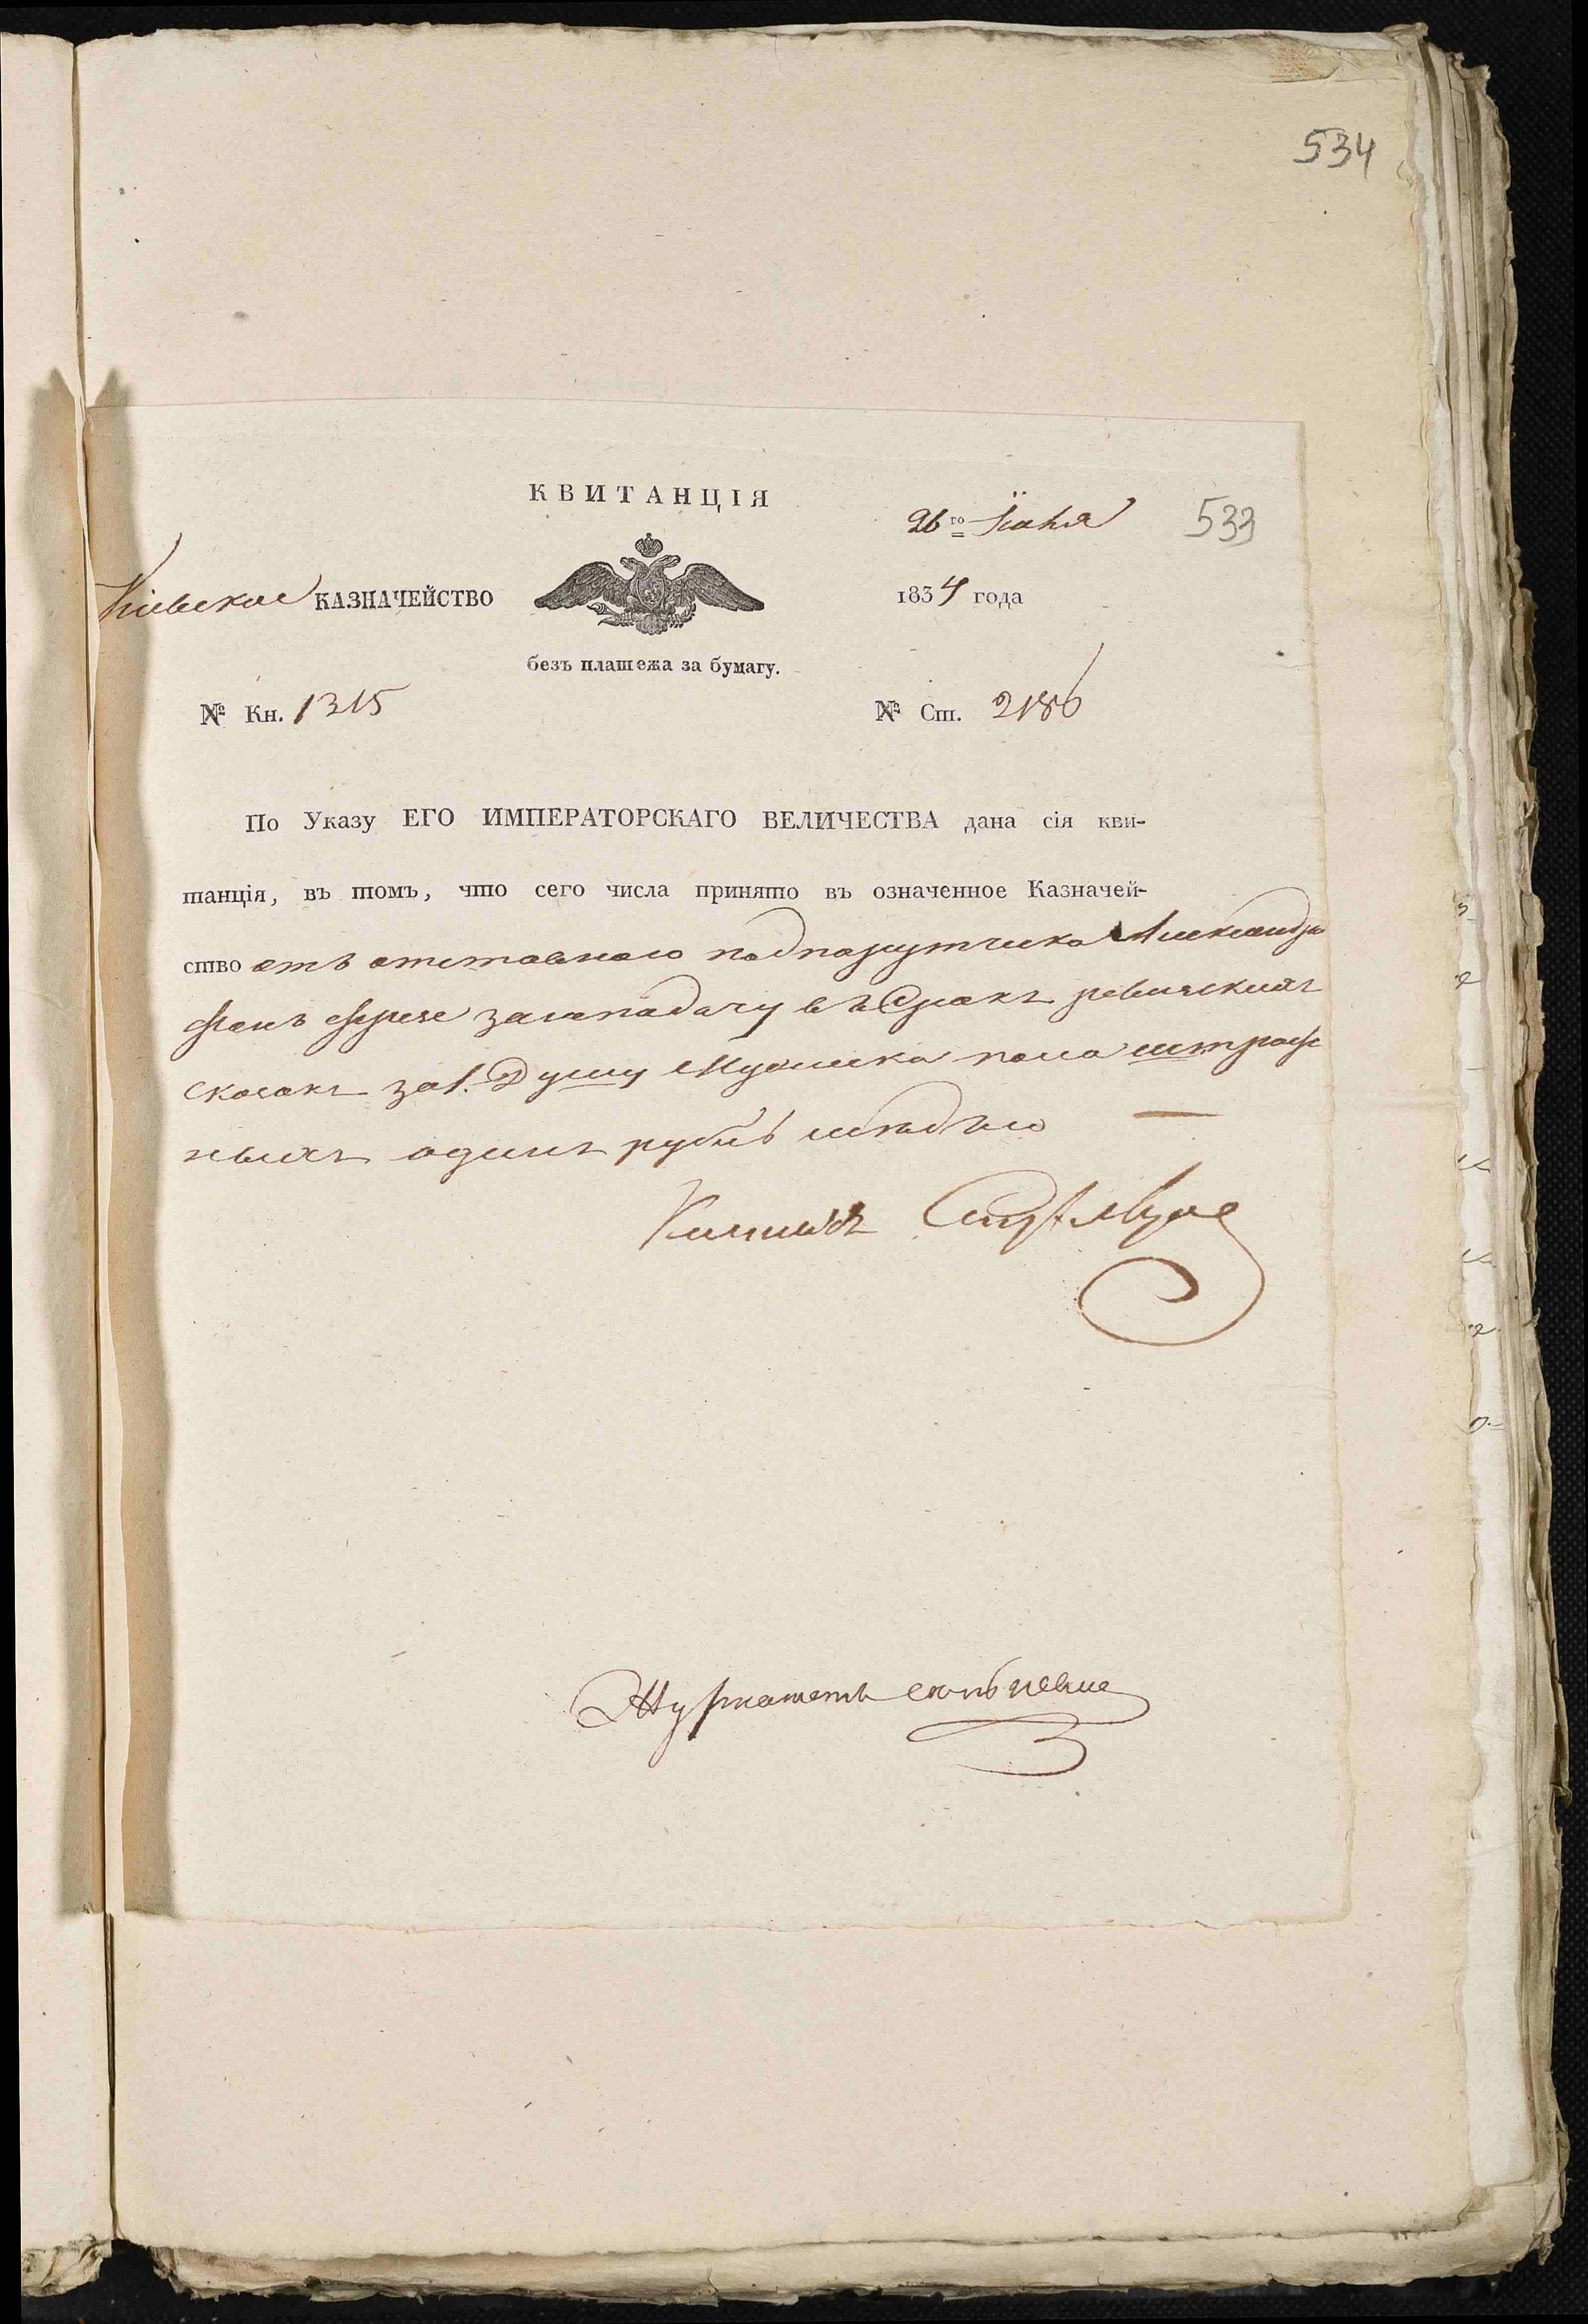 534
КВИТАНЦІЯ
26го Іюня 533
Кіевское КАЗНАЧЕЙСТВО
1834 года
безъ платежа за бумагу.
№ Кн. 1315 № Ст. 2186
По Указу ЕГО ИМПЕРАТОРСКАГО ВЕЛИЧЕСТВА дана сія кви-
танція, въ томъ, что сего числа принято въ означенное Казначей-
ство отъ отставнаго подпорутчика Александра
фонъ занеподачу въ Срокъ ревижскихъ
сказокъ за 1. Душу Мужеска пола штраф
ныхъ одинъ рубль мѣдью